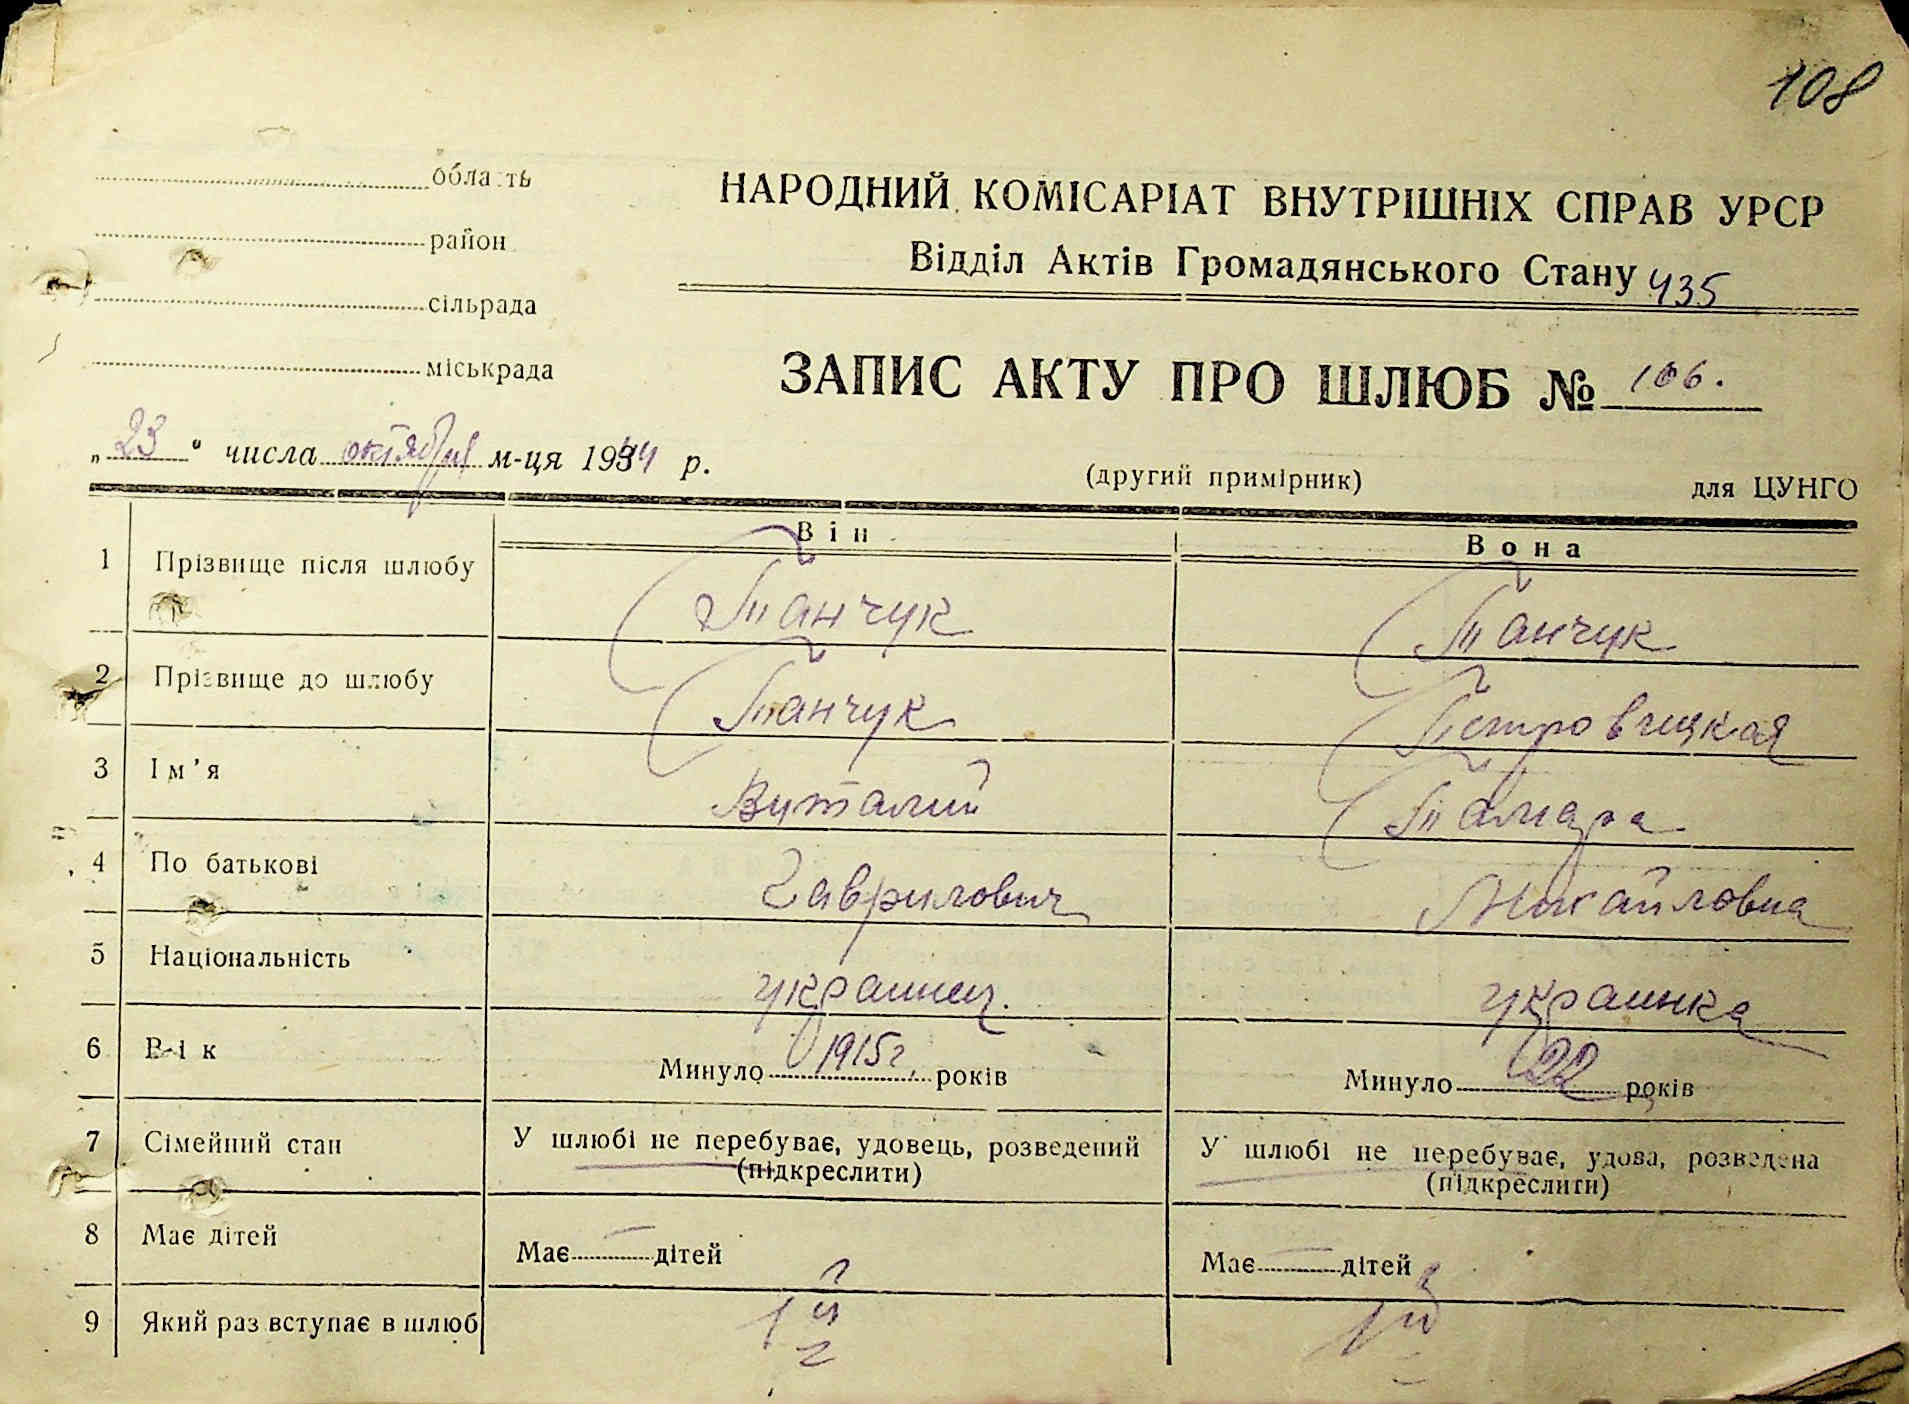 108
область
район
сільрада
міськрада
НАРОДНИЙ КОМІСАРІАТ ВНУТРІШНІХ СПРАВ УРСР
Відділ Актів Громадянського Стану 435
ЗАПИС АКТУ ПРО ШЛЮБ № 106.
„23“ числа октября м-ця 1944 р.
(другий примірник) для ЦУНГО
Він Вона
1 Прізвище після шлюбу Танчук Танчук
2 Прізвище до шлюбу Танчук Петровицкая
3 Ім'я Виталий Тамара
4 По батькові Гаврилович Михайловна
5 Національність украинец. украинка
6 Вік Минуло 1915 г. років Минуло 22 років
7 Сімейний стан У шлюбі не перебуває, удовець, розведений (підкреслити) У шлюбі не перебуває, удова, розведена (підкреслити)
8 Має дітей Має — дітей Має — дітей
9 Який раз вступає в шлюб 1й 1й